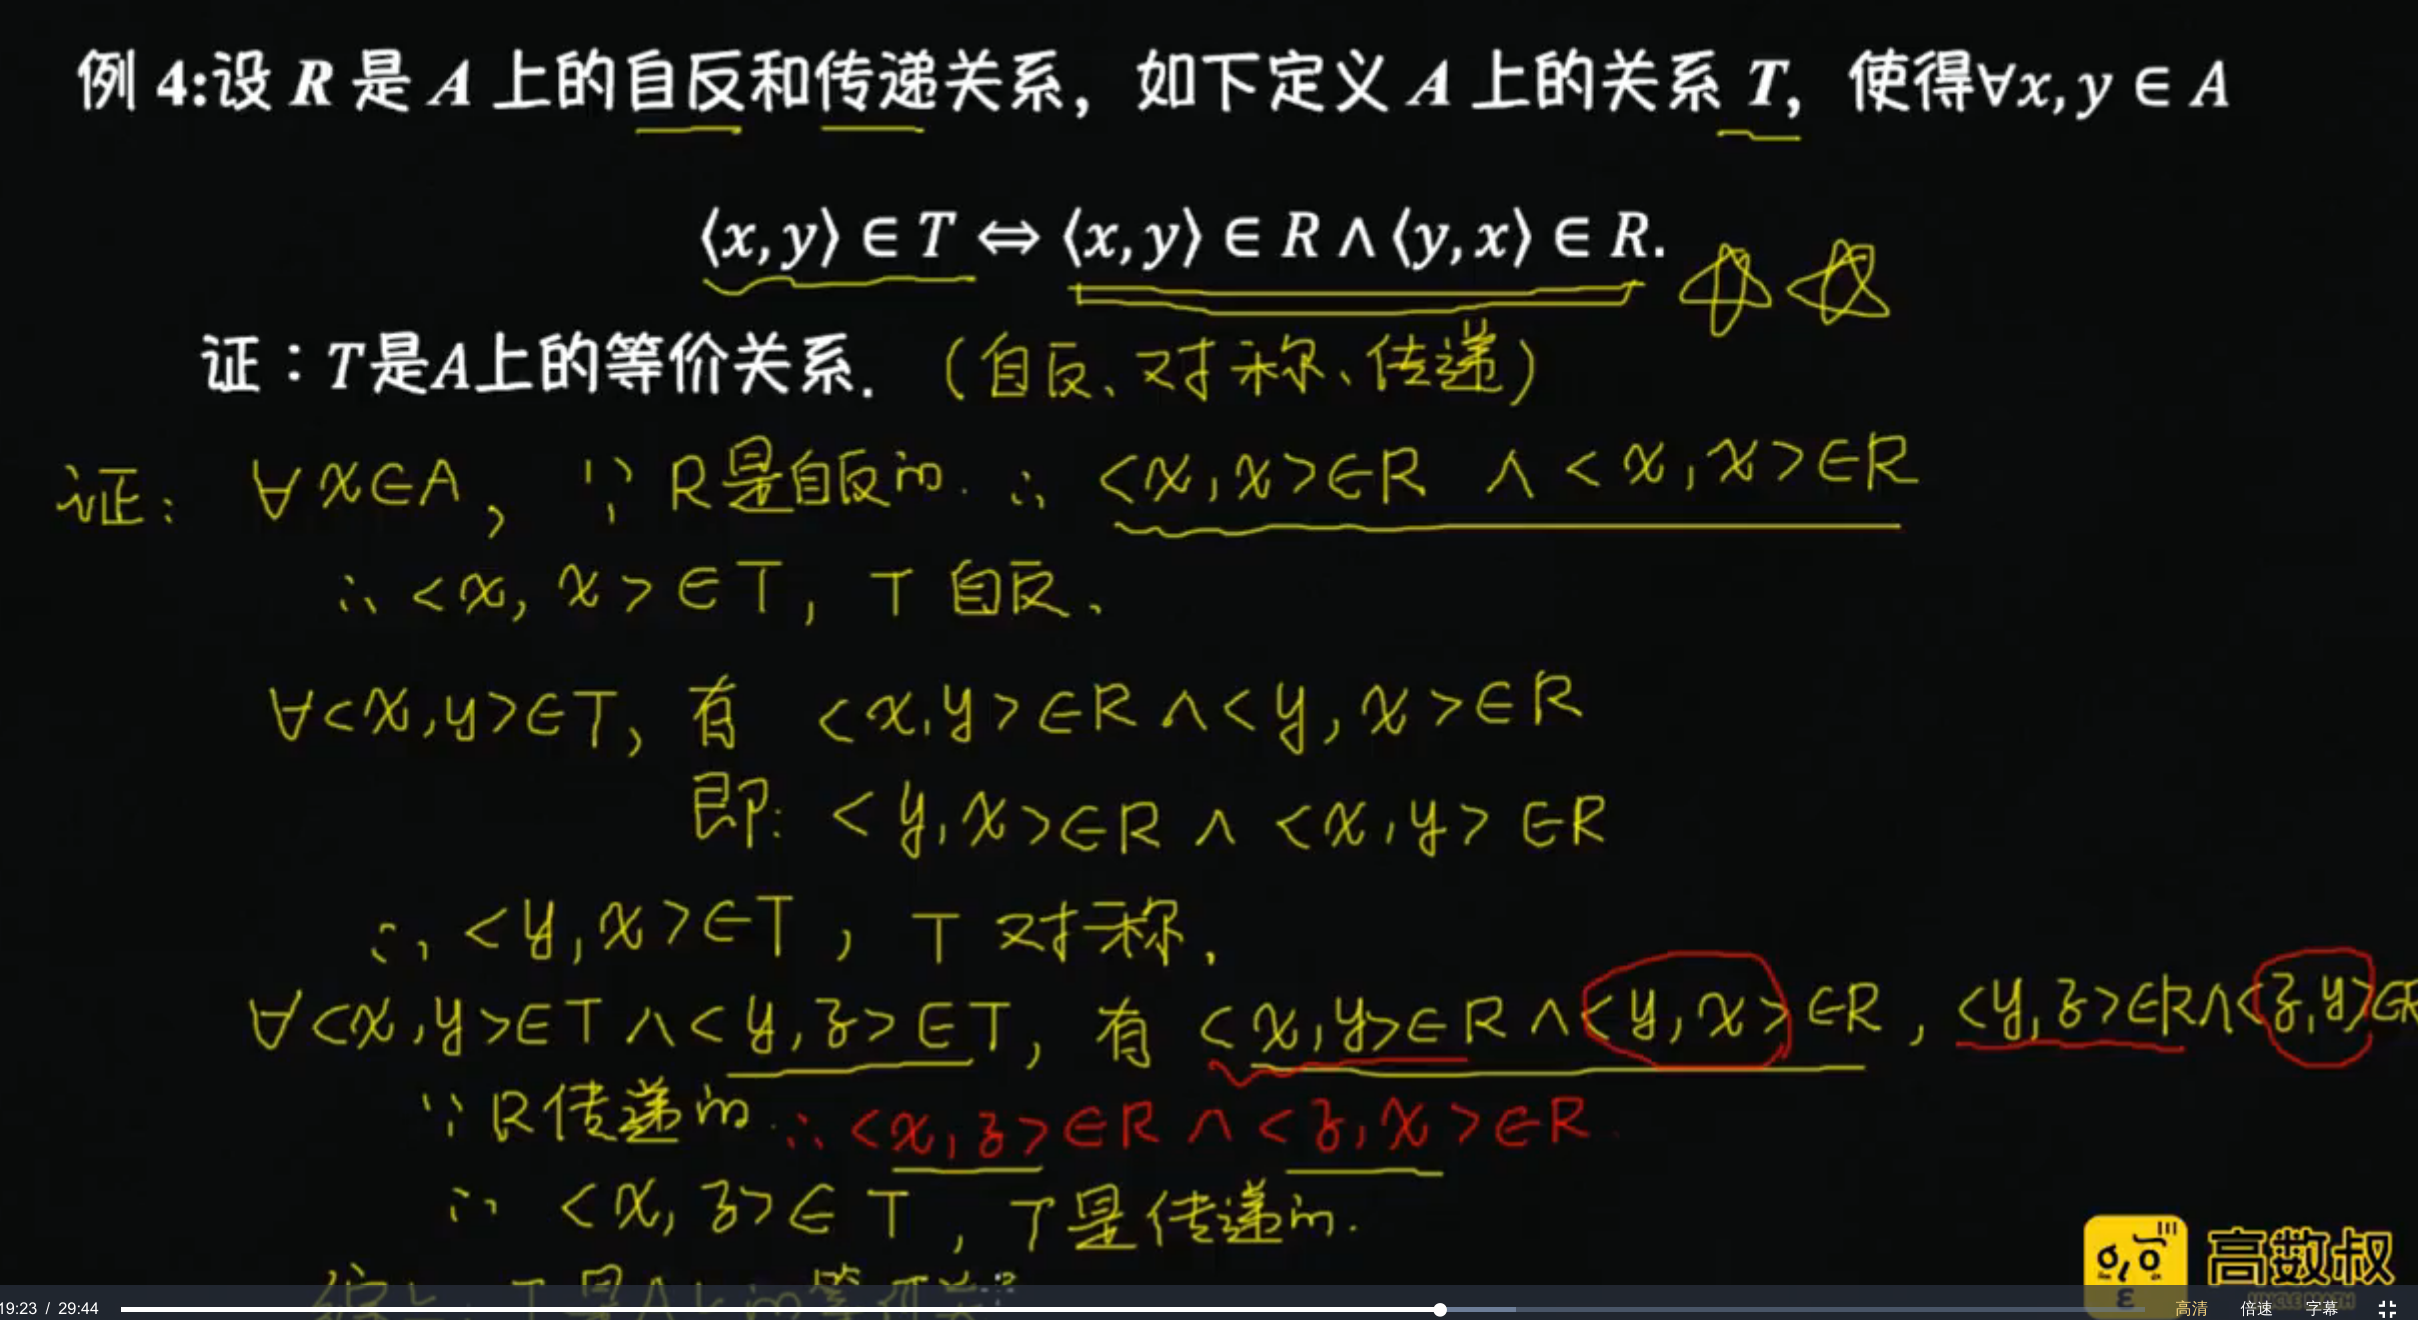 例 4:设 R 是 A 上的自反和传递关系，如下定义 A 上的关系 T，使得∀x, y ∈ A
⟨x, y⟩ ∈ T ⇔ ⟨x, y⟩ ∈ R ∧ ⟨y, x⟩ ∈ R.
证：T是A上的等价关系.（自反、对称、传递）
证: ∀x∈A, ∵ R是自反的. ∴ <x,x>∈R ∧ <x,x>∈R
∴ <x,x>∈T, T 自反、
∀<x,y>∈T, 有 <x,y>∈R ∧ <y,x>∈R
即: <y,x>∈R ∧ <x,y>∈R
∴ <y,x>∈T, T 对称.
∀<x,y>∈T ∧ <y,z>∈T, 有 <x,y>∈R ∧ <y,x>∈R, <y,z>∈R ∧ <z,y>∈R
∵ R传递的. ∴ <x,z>∈R ∧ <z,x>∈R.
∴ <x,z>∈T, T是传递的.
综上 T是A上的等价关
高数叔
UNCLE MATH
19:23 / 29:44
高清 倍速 字幕